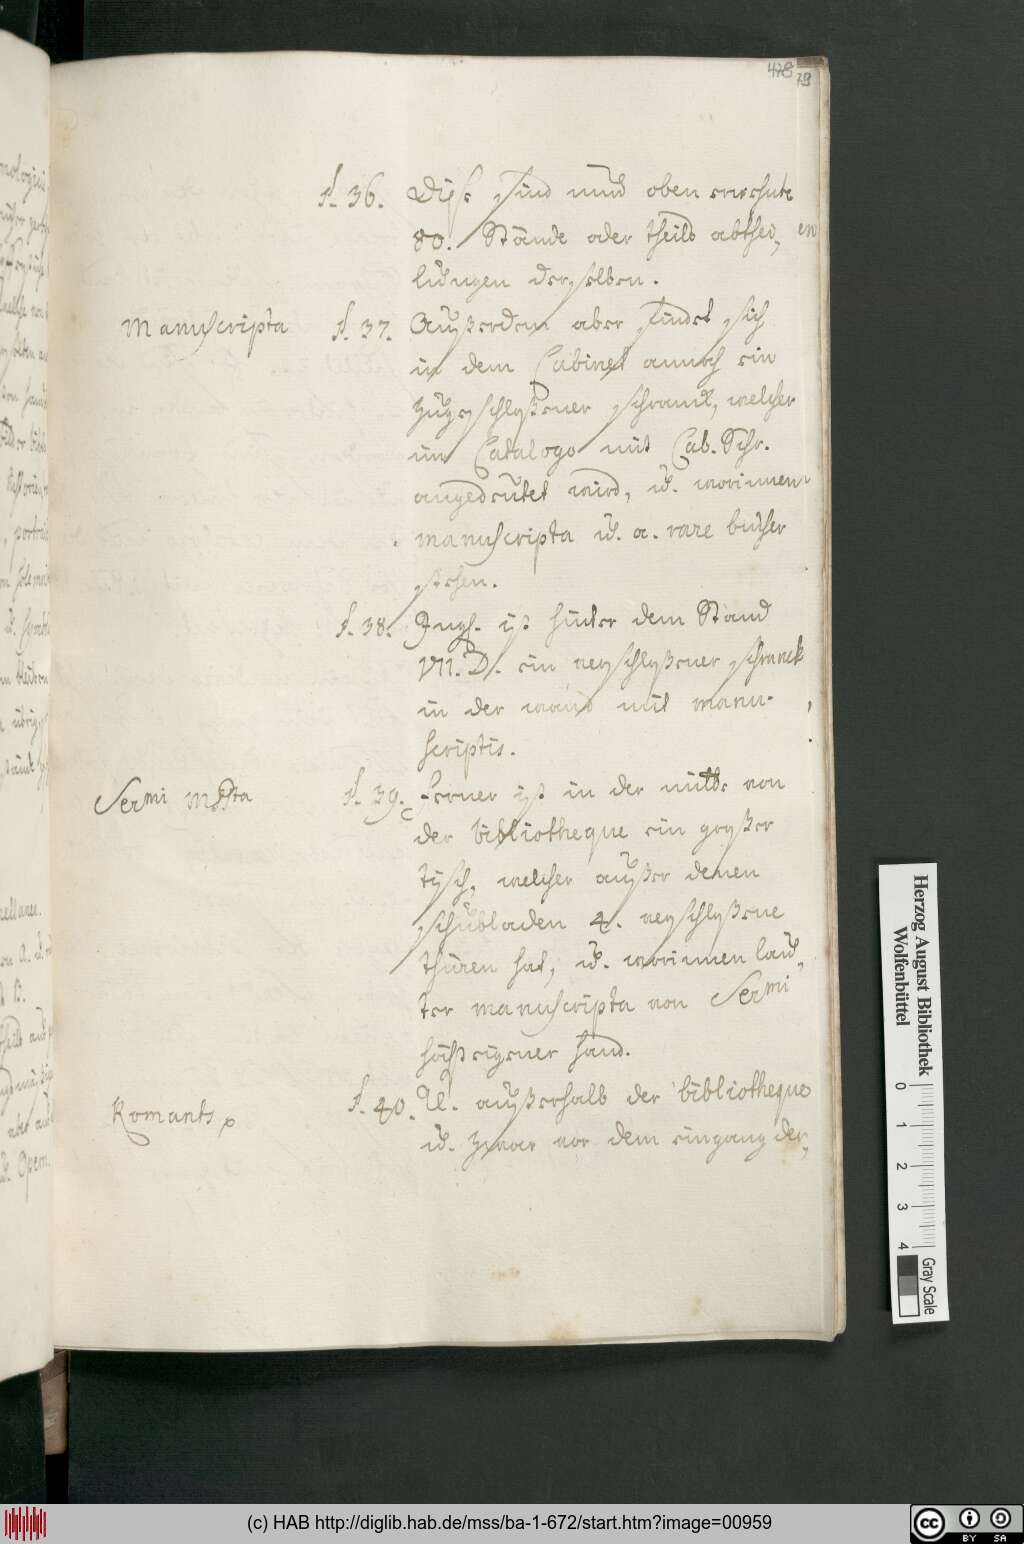 478
79
§. 36. Diß sind nun oben erwehnte
80. Stände oder theils abthei,
lungen derselben.
Manuscripta §. 37. Außerdem aber findet sich
in dem Cabinet annoch ein
zugeschloßener schranck, welcher
im Catalogo mit Cab. Schr.
angedeutet wird, u. worinnen
manuscripta u. a. rare bücher
stehen.
§. 38. Ingl. ist hinter dem Stand
VII. D. ein verschloßener schranck
in der wand mit manu-
scriptis.
Sermi Mssta §. 39. Ferner ist in der mitte von
der bibliotheque ein großer
tisch, welcher außer denen
schubladen 4. verschloßene
thüren hat, u. worinnen lau,
ter manuscripta von Sermi
höchsteigener hand.
Romants §. 40. U. außerhalb der bibliotheque
u. zwar vor dem eingang der,
Herzog August Bibliothek
Wolfenbüttel
0 1 2 3 4
Gray Scale
(c) HAB http://diglib.hab.de/mss/ba-1-672/start.htm?image=00959
cc BY SA